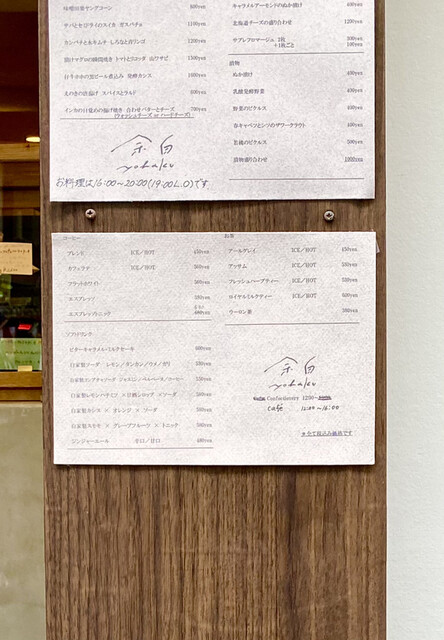 味噌田楽ヤングコーン 800yen
サバとセヴィライのスイカ 黒スパチョ 1100yen
カンパチとあキムチ しろなと青リンゴ 1200yen
漬けマグロの瞬間燻き トマトとコッタ 山ワサビ 1300yen
仔牛ホホの黒ビール煮込み 発酵カシス 1600yen
えのきの唐揚げ スパイスとラルド 600yen
インカの目覚めの揚げ焼き 合わせバターとチーズ 700yen
(ウォッシュチーズ or ハードチーズ)
余白
yohaku
お料理は16:00~20:00(19:00L.O)です
キャラメルアーモンドのぬか漬け 400yen
北海道チーズの盛り合わせ 1200yen
サブレフロマージュ 2枚 300yen
+1枚ごと 100yen
漬物
ぬか漬け 400yen
乳酸発酵野菜 400yen
野菜のピクルス 400yen
春キャベツとシソのザワークラウト 400yen
茗荷のピクルス 500yen
漬物盛り合わせ 1000yen
コーヒー
ブレンド ICE/HOT 450yen
カフェラテ ICE/HOT 500yen
フラットホワイト 500yen
エスプレッソ 350yen
エスプレッソトニック 600yen
ソフトドリンク
ビターキャラメル・ミルクセーキ 600yen
自家製ソーダ レモン/タンカン/ウメ/ガリ 500yen
自家製レモンハチミツ × 甘酒シロップ × ソーダ 580yen
自家製カシス × オレンジ × ソーダ 580yen
自家製スモモ × グレープフルーツ × トニック 580yen
ジンジャーエール 辛口/甘口 480yen
紅茶
アールグレイ ICE/HOT 450yen
アッサム ICE/HOT 450yen
フレッシュハーブティー ICE/HOT 500yen
ロイヤルミルクティー ICE/HOT 600yen
ウーロン茶 500yen
余白
yohaku
Confectionery 12:00~
café 12:00~16:00
※全て税込み価格です